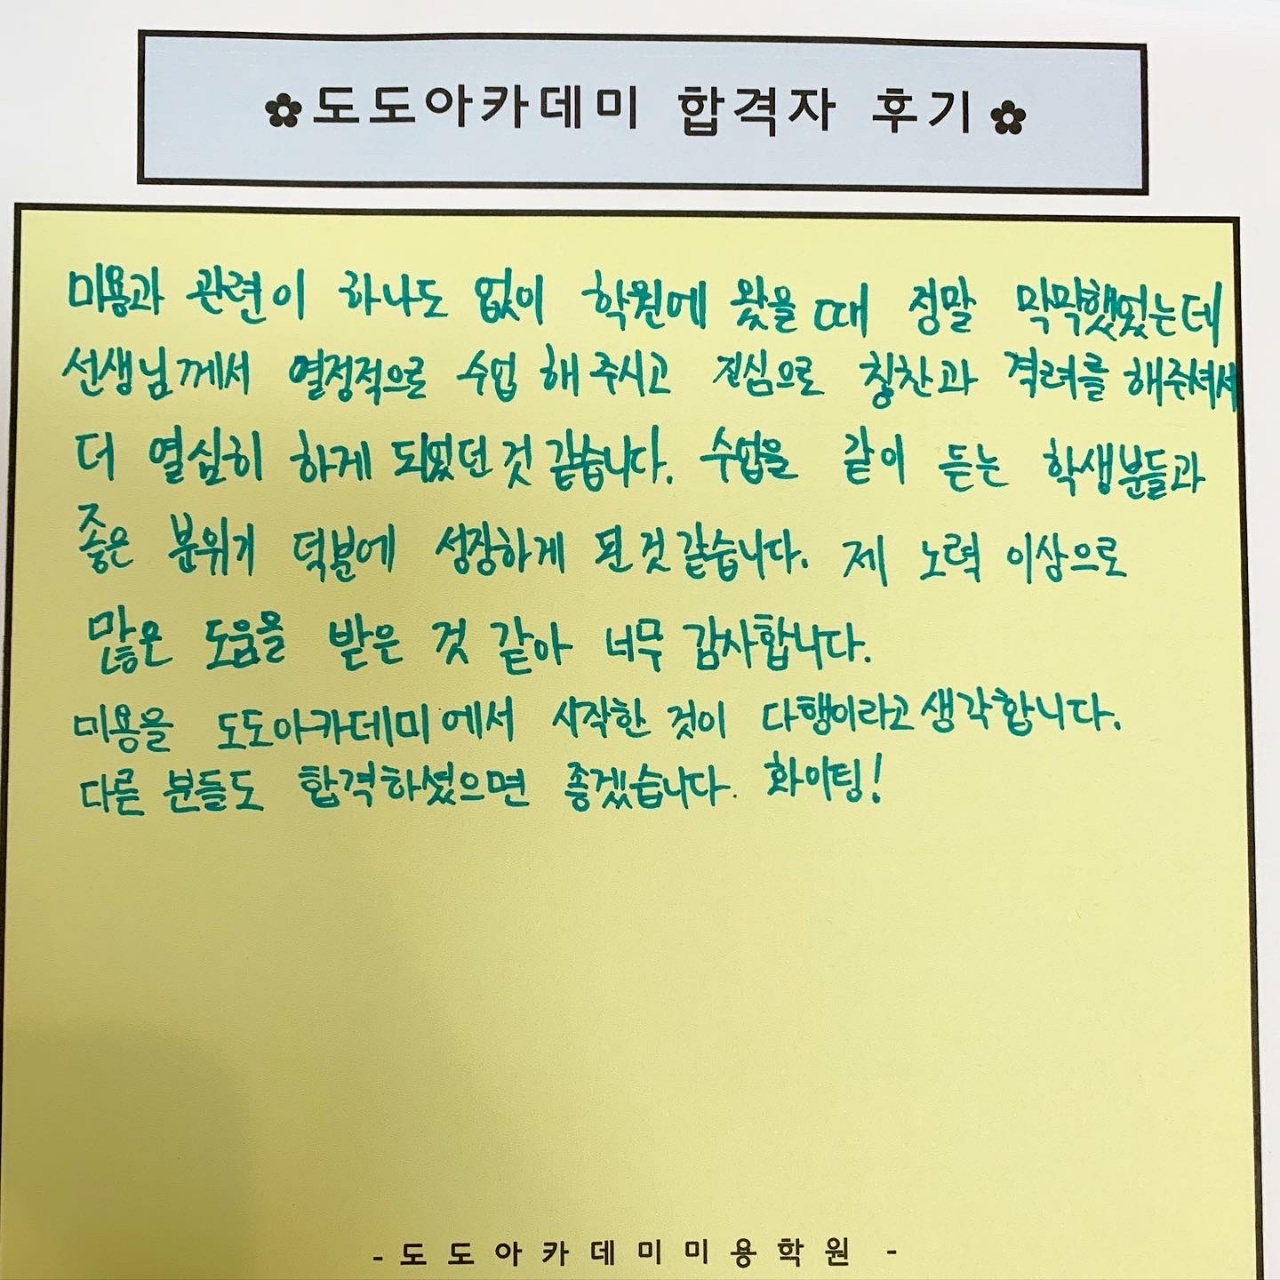 ✿도도아카데미 합격자 후기✿
미용과 관련이 하나도 없이 학원에 왔을때 정말 막막했었는데
선생님께서 열정적으로 수업 해주시고 진심으로 칭찬과 격려를 해주셔서
더 열심히 하게 되었던 것 같습니다. 수업을 같이 듣는 학생분들과
좋은 분위기 덕분에 성장하게 된 것 같습니다. 제 노력 이상으로
많은 도움을 받은 것 같아 너무 감사합니다.
미용을 도도아카데미에서 시작한 것이 다행이라고 생각합니다.
다른 분들도 합격하셨으면 좋겠습니다. 화이팅!
- 도도아카데미미용학원 -